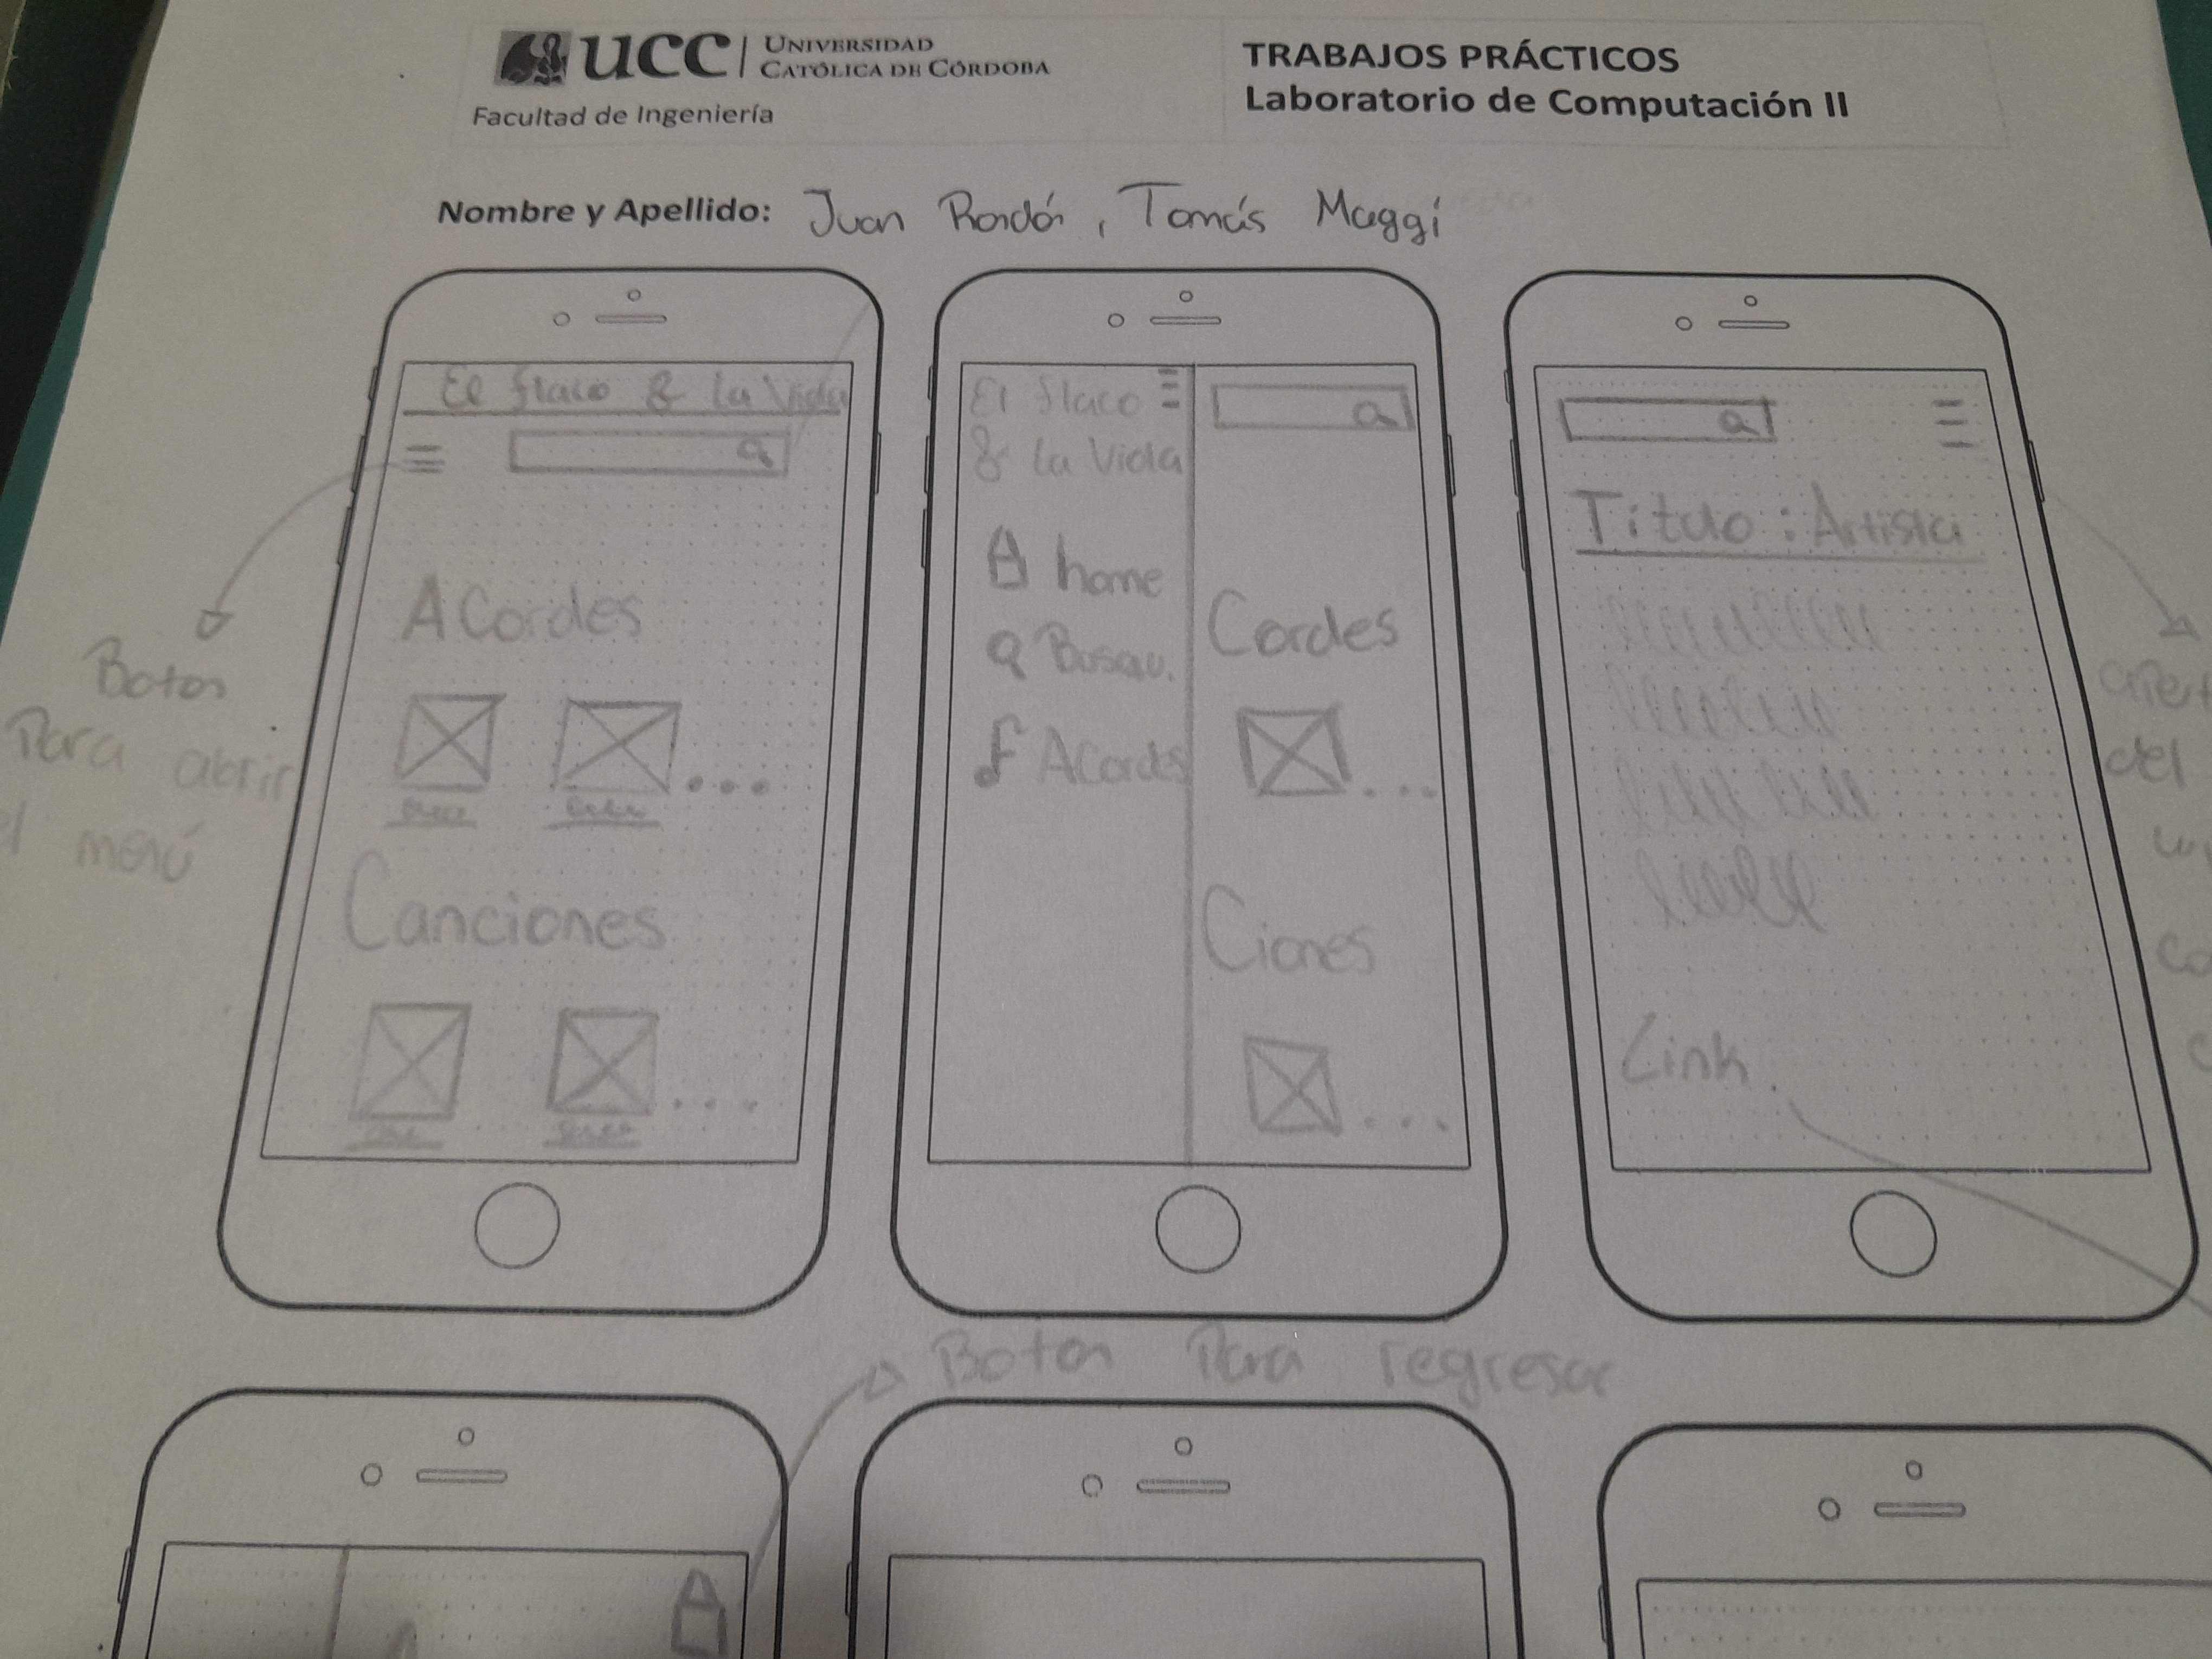 UCC UNIVERSIDAD
CATÓLICA DE CÓRDOBA
Facultad de Ingeniería
TRABAJOS PRÁCTICOS
Laboratorio de Computación II
Nombre y Apellido: Juan Rondón, Tomás Maggi
El flaco & la Vida
Acordes
...
Canciones
...
Boton
Para abrir
el menú
El flaco
& la Vida
home
Busqu.
Acords
Cordes
...
Ciones
...
Titulo : Artista
Link.
del
Boton Para regresar